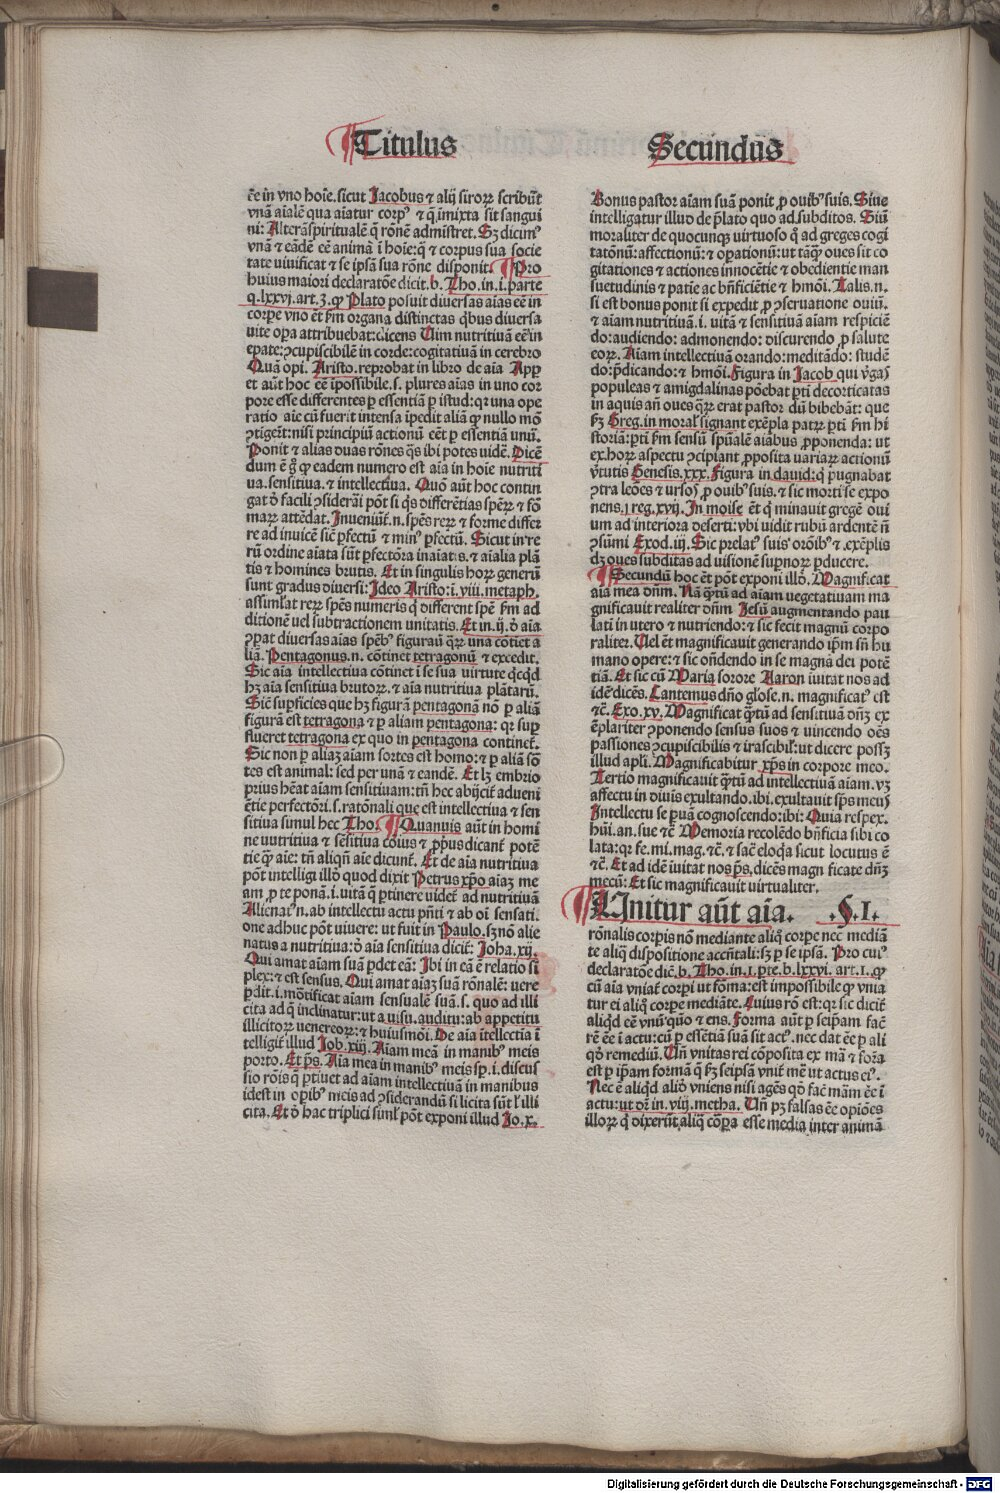 Titulus
Secundus
e͞e in vno hoi͞e. sicut Jacobus ⁊ alij siroꝝ scribu͞t
vna͞ ai͞ale͞ qua ai͞atur corpꝰ ⁊ q͞ imixta sit sangui
ni: Altera͞ spirituale͞ q͞ ro͞ne͞ admi͞stret. Sꝫ dicimꝰ
vna͞ ⁊ ea͞de͞ e͞e anima͞ i͞ hoi͞e: q͞ ⁊ corpus sua socie
tate viuificat ⁊ se ip͞sa͞ sua ro͞ne disponit. ¶ Pro
huius maiori declarato͞e dicit. b. Tho. in. i. parte
q. lxxvj. art. 3. ꝙ Plato posuit diuersas ai͞as e͞e in
corp͞e vno e͞t ẜm organa distinctas q͞bus diuersa
vite op͞a attribuebat: dicens Uim nutritiua͞ e͞e i͞n
epate: ↄcupiscibile͞ in corde: cogitatiua͞ in cerebro
Qua͞ opi. Aristo. reprobat in libro de ai͞a App͞
et au͞t hoc e͞e ip͞ossibile. s. plures ai͞as in uno cor
pore esse differentes ꝑ essentia͞ ꝑ istud: qꝛ una ope
ratio ai͞e cu͞ fuerit intensa ip͞edit alia͞ ꝙ nullo mo͞
ↄtige͞t: nisi principiu͞ actionu͞ e͞et ꝑ essentia͞ unu͞.
Ponit ⁊ alias duas ro͞nes q͞s ibi potes uide͞. Dice͞
dum e͞ g͞ ꝙ eadem numero est ai͞a in hoi͞e nutriti
ua. sensitiua. ⁊ intellectiua. Quo͞ au͞t hoc contin
gat d͞ facili ↄsidera͞i po͞t si q͞s differe͞tias spe͞ꝝ ⁊ fo͞
maꝝ atte͞dat. Inueniu͞t᷑. n. spe͞s reꝝ ⁊ forme differ
re ad inuice͞ sic͞ ꝑfectu͞ ⁊ minꝰ ꝑfectu͞. Sicut in re
ru͞ ordine ai͞ata su͞t ꝑfecto͞ra ina͞iatis. ⁊ ai͞alia pla͞
tis ⁊ homines brutis. Et in singulis hoꝝ generu͞
sunt gradus diuersi: Ideo Aristo: i͞. viii. metaph.
assimlat reꝝ spe͞s numeris q͞ different spe͞ ẜm ad
ditione͞ uel subtractionem unitatis. Et in. ij. d͞ ai͞a
ↄꝑat diuersas ai͞as spe͞bꝰ figuraꝝ q͞ꝝ una co͞tiet a
lia͞. Pentagonus. n. co͞tinet tetragonu͞ ⁊ excedit.
Sic ai͞a intellectiua co͞tinet i͞ se sua uirtute q͞cq͞d
hꝫ ai͞a sensitiua brutoꝝ. ⁊ ai͞a nutritiua pla͞taru͞.
Sic͞ suꝑficies que hꝫ figura͞ pentagona͞ no͞ ꝑ alia͞
figura͞ est tetragona ⁊ ꝑ aliam pentagona: qꝛ suꝑ
flueret tetragona ex quo in pentagona continet᷑.
Sic non ꝑ aliaꝫ ai͞am sortes est homo: ⁊ ꝑ alia͞ so͞
tes est animal: sed per una͞ ⁊ eande͞. Et lꝫ embrio
prius h͞eat ai͞am sensitiuam: tn͞ hec abijcit᷑ adueni
e͞tie perfecto͞ri. s. rato͞nali que est intellectiua ⁊ sen
sitiua simul hec Tho. ¶ Quanuis au͞t in homi
ne uutritiua ⁊ se͞sitiua co͞ius ⁊ ꝓpꝰ dicant᷑ pote͞
tie q͞ ai͞e: tn͞ aliqn͞ ai͞e dicunt᷑. Et de ai͞a nutritiua
po͞t intelligi illo͞ quod dixit Petrus xp͞o ai͞aꝫ me
am ꝓ te pona͞. i. uita͞ q͞ ꝑtinere uidet᷑ ad nutritiua͞
Alienatꝰ n. ab intellectu actu pn͞ti ⁊ ab oi͞ sensati.
one adhuc po͞t uiuere: ut fuit in Paulo. sꝫ no͞ alie
natus a nutritiua: d͞ ai͞a sensitiua dicit᷑: Joha. xij.
Qui amat ai͞am sua͞ ꝑdet ea͞: Ibi in ea͞ e͞ relatio si͞
plex: ⁊ est sensus. Qui amat ai͞aꝫ sua͞ ro͞nale͞: uere
ꝑdit. i. mo͞tificat ai͞am sensuale͞ sua͞. s. quo ad illi
cita ad q͞ inclinatur: ut a uisu. auditu: ab appetitu
illicitoꝝ uenereoꝝ: ⁊ huiusmo͞i. De ai͞a i͞tellectia i͞
telligit᷑ illud Job. xiij. Ai͞am mea͞ in manibꝰ meis
porto. Et p͞s. Ai͞a mea in manibꝰ meis sꝑ. i. discus
sio ro͞is q͞ ꝑtinet ad ai͞am intellectiua͞ in manibus
idest in oꝑibꝰ meis ad ↄsideranduꝫ si licita su͞t l᷑ illi
cita. Et d͞ hac triplici siml᷑ po͞t exponi illud Jo. x.
Bonus pastor ai͞am sua͞ ponit ꝓ ouibꝰ suis. Siue
intelligatur illud de p͞lato quo ad subditos. Siu͞
moraliter de quocunqꝫ virtuoso q͞ ad greges cogi
tatonu͞: affectionu͞: ⁊ oꝑationu͞: ut ta͞qꝫ oues sit co
gitationes ⁊ actiones innoce͞tie ⁊ obedientie man
suetudinis ⁊ patie ac bn͞ficie͞tie ⁊ hmo͞i. Talis. n.
si est bonus ponit si expedit ꝓ ↄseruatione ouiu͞.
⁊ ai͞am nutritiua͞. i. uita͞ ⁊ sensitiua͞ ai͞am respicie͞
do: audiendo: admonendo: discurendo ꝓ salute
eoꝝ. Ai͞am intellectiua͞ orando: medita͞do: stude͞
do: p͞dicando: ⁊ hmo͞i. Figura in Jacob qui v͞gas
populeas ⁊ amigdalinas po͞ebat ꝑti͞ decorticatas
in aquis an͞ oues q͞ꝝ erat pastor du͞ bibeba͞t: que
ẜꝫ Greg. in moral signant exe͞pla patꝝ ꝑti͞ ẜm hi
storia͞: ꝑti͞ ẜm sensu͞ spu͞ale͞ ai͞abus ꝓponenda: ut
ex. hoꝝ aspectu ↄcipiant ꝓposita uariaꝝ actionu͞
v͞tutis Genesis. xxx. Figura in dauid: q͞ pugnabat
ↄtra leo͞es ⁊ ursos ꝓ ouibꝰ suis. ⁊ sic morti se expo
nens. j reg. xvij. In moise e͞t q͞ minauit grege͞ oui
um ad interiora deserti: vbi uidit rubu͞ ardente͞ n͞
ↄsu͞mi Exod. iij. Sic prelatꝰ suis o͞ro͞ibꝰ ⁊ .exe͞plis
dꝫ oues subditas ad visione͞ suꝑnoꝝ ꝑducere.
¶ Secundu͞ hoc e͞t po͞t exponi illo͞. Magnificat
ai͞a mea dn͞m. Na͞ q͞tu͞ ad ai͞am uegetatuam ma
gnificauit realiter dn͞m Jesu͞ augmentando pau
lati in utero ⁊ nutriendo: ⁊ sic fecit magnu͞ corpo
raliter. Uel e͞t magnificauit generando ip͞m sn͞ hu
mano opere: ⁊ sic on͞dendo in se magna dei pote͞
tia͞. Et sic cu͞ Maria sorore Aaron iuitat nos ad
ide͞ dice͞s. Cantemus dn͞o glo͞se. n. magnificatꝰ est
⁊c͞. Exo. xv. Magnificat q͞tu͞ ad sensitiua dn͞ꝫ ex
e͞plariter ↄponendo sensus suos ⁊ uincendo oe͞s
passiones ↄcupiscibilis ⁊ irascibil᷑: ut dicere possꝫ
illud apl͞i. Magnificabitur xp͞s in corpore meo.
Tertio magnificauit q͞tu͞ ad intellectiua͞ ai͞am. vꝫ
affectu in diui͞s exultando. ibi. exultauit sp͞s meus
Intellectu se ꝑua͞ cognoscendo: ibi: Quia respex.
hu͞i. an. sue ⁊c͞ Memoria recole͞do bn͞ficia sibi co
lata: qꝛ fe. mi. mag. ⁊c͞. ⁊ sac͞ eloq͞a sicut locutus e͞
⁊c͞. Et ad ide͞ iuitat nos p͞s. dice͞s magn ficate dn͞ꝫ
mecu͞: Et sic magnificauit uirtualiter.
¶ Unitur au͞t ai͞a. .§.I.
ro͞nalis corp͞is no͞ mediante aliq͞ corp͞e nec media͞
te aliq͞ dispositione accn͞tali: sꝫ ꝑ se ip͞sa͞. Pro cuiꝰ
declarato͞e dic͞. b. Tho. in. 1. ꝑte. b. lxxvi. art. 1. ꝙ
cu͞ ai͞a vniat᷑ corp͞i ut fo͞ma: est impossibile ꝙ vnia
tur ei aliq͞ corp͞e media͞te. Cuius ro͞ est: qꝛ sic dicit᷑
aliq͞d e͞e vnu͞ quo͞ ⁊ ens. Forma au͞t ꝑ seip͞am fac͞
re͞ e͞e i͞ actu: cu͞ ꝑ esse͞tia͞ sua͞ sit actꝰ. nec dat e͞e ꝑ ali
qd͞ remediu͞. Un͞ vnitas rei co͞posita ex ma͞ ⁊ fo͞ra
est ꝑ ip͞am forma͞ q͞ ẜꝫ seip͞sa͞ vnit᷑ me͞ ut actus eiꝰ.
Nec e͞ aliq͞d alid͞ vniens nisi age͞s qd͞ fac͞ ma͞m e͞e i͞
actu: ut dr͞ in. viij. metha. Un͞ pꝫ falsas e͞e opio͞es
illoꝝ q͞ dixeru͞t. aliq͞ co͞rꝑa esse media inter anima͞
Digitalisierung gefördert durch die Deutsche Forschungsgemeinschaft - DFG